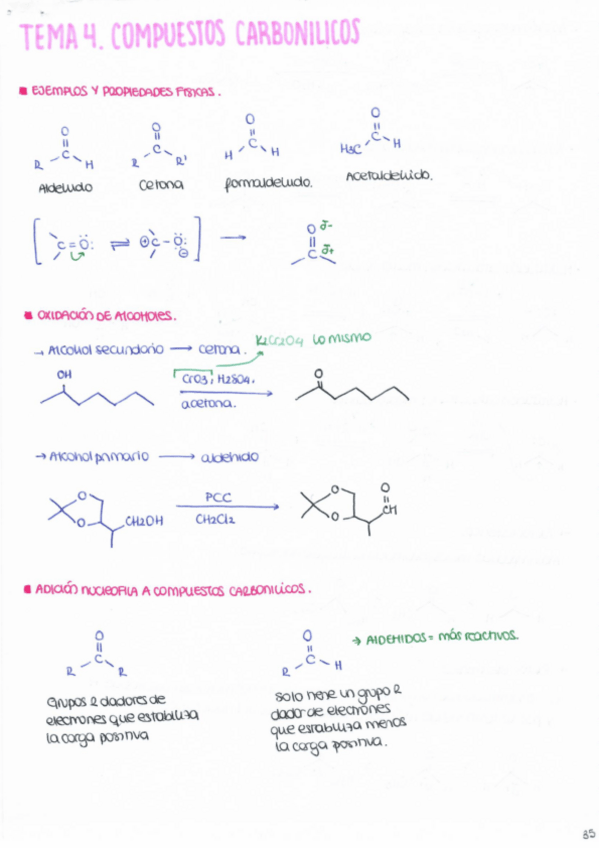 TEMA 4. COMPUESTOS CARBONILICOS
■ EJEMPLOS Y PROPIEDADES FISICAS.
O O O O
R C H R C R' H C H H3C C H
Aldehido Cetona formaldehido. Acetaldehido.
[ C=Ö: ⇌ ⊕C-Ö: ⊖ ] → O δ- C δ+
■ OXIDACIÓN DE ALCOHOLES.
→ Alcohol secundario → cetona. K2Cr2O4 lo mismo
OH CrO3, H2SO4. O
acetona.
→ Alcohol primario → aldehido
O O CH2OH PCC O O O CH
CH2Cl2
■ ADICIÓN NUCLEOFILA A COMPUESTOS CARBONILICOS.
O O → ALDEHIDOS = más reactivos.
R C R R C H
Grupos R dadores de
electrones que estabiliza
la carga positiva
Solo tiene un grupo R
dador de electrones
que estabiliza menos
la carga positiva.
85